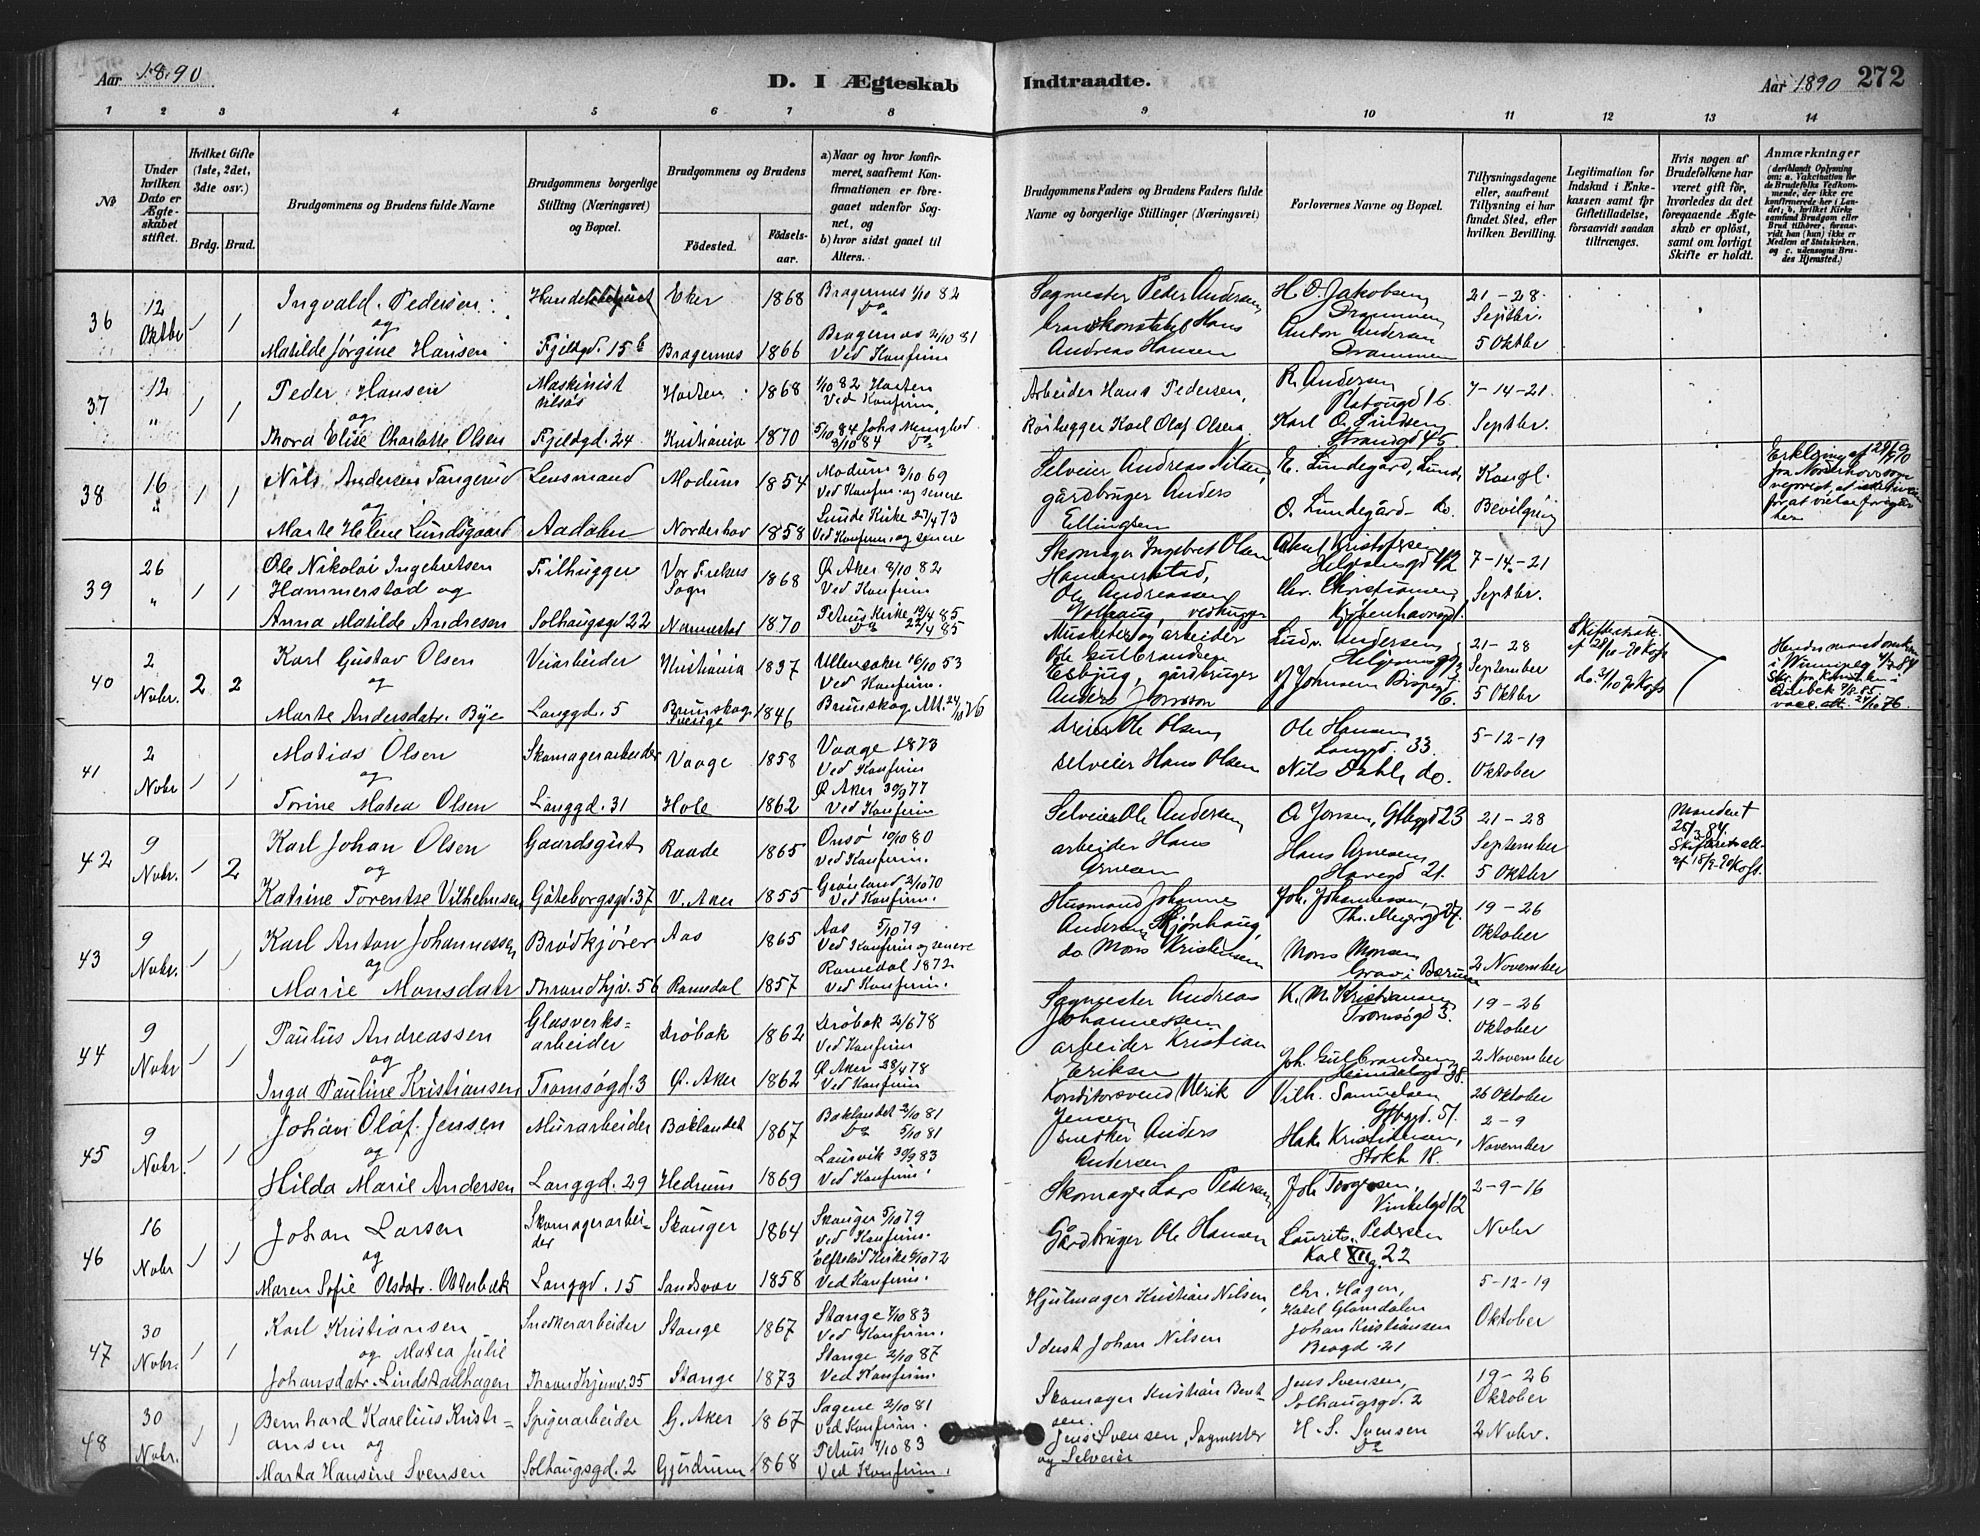 Aar 1890
D. I Ægteskab
Indtraadte.
Aar 1890
272
1 2 3 4 5 6 7 8 9 10 11 12 13 14
No
Under hvilken Dato er Ægteskabet stiftet.
Hvilket Gifte (1ste, 2det, 3die osv.)
Brdg. Brud.
Brudgommens og Brudens fulde Navne
Brudgommens borgerlige Stilling (Næringsvei) og Bopæl.
Brudgommens og Brudens
Fødested.
Fødselsaar.
a) Naar og hvor konfirmeret, saafremt Konfirmationen er foregaaet udenfor Sognet, og
b) hvor sidst gaaet til Alters.
Brudgommens Faders og Brudens Faders fulde Navne og borgerlige Stillinger (Næringsvei)
Forlovernes Navne og Bopæl.
Tillysningsdagene eller, saafremt Tillysning ei har fundet Sted, efter hvilken Bevilling.
Legitimation for Indskud i Enkekassen samt for Giftetilladelse, forsaavidt saadan tiltrænges.
Hvis nogen af Brudefolkene har været gift før, hvorledes da det foregaaende Ægteskab er opløst, samt om lovligt Skifte er holdt.
Anmærkninger
36
12 Oktbr
1 1
Ingvald Pedersen
og
Matilde Jørgine Hansen
Fjeldgd. 15 b
Eker 1868
Bragernes 1866
Bragernes 1/10 82
Do
Bragernes 2/10 81
Ved Konfirm
Sagmester Peder Andersen,
Hans
Andreas Hansen
H. O. Jakobsen,
Drammen
Anton Andersen
Drammen
21 - 28
Septbr.
5 Oktbr
37
12 "
1 1
Peder Hansen
og
Thora Elise Charlotte Olsen
Maskinist
Fjeldgd. 24
Horten 1868
Kristiania 1870
1/10 82 Horten
Ved Konfirm.
5/10 84 Johs Menighed
Do
Arbeider Hans Pedersen,
Karl Olaf Olsen
R. Andersen
Platougd 16.
Karl O. Knudsen
Strandgd 45
7 - 14 - 21
Septbr.
38
16 "
1 1
Nils Andersen Tangerud
og
Marte Helene Lundsgaard
Lensmand
Aadalen
Modum 1854
Norderhov 1858
Modum 3/10 69
Ved Konfirm. og senere
Lunde Kirke 27/4 73
Ved Konfirm. og senere
Selveier Andreas Nilsen,
gårdbruger Anders
Ellingsen
E. Lundegård, Lund,
O. Lundegård do.
Kongl.
Bevilgning
39
26 "
1 1
Ole Nikolai Ingebretsen
Hammerstad og
Anna Matilde Andresen
Filhugger
Solhaugsgd 22
Vor Frelsers
Sogn 1868
Nannestad 1870
Ø. Aker 8/10 82
Ved Konfirm
Petrus Kirke 19/4 85
Do 22/4 85
Skomager Ingebret Olsen
Hammerstad,
Ole Andreassen
Volhaug, vedhugger
Aksel Kristofersen
Helgesensgd 42
Chr. Christiansen,
Kjøbenhavnsgd
7 - 14 - 21
Septbr.
40
2 Novbr.
2 2
Karl Gustav Olsen
og
Marte Andersdatr. Bye
Veiarbeider
Langgd. 5
Kristiania 1837
Brunskog
Sverige 1846
Ullensaker 16/10 53
Ved Konfirm.
Brunskog
Musketer og arbeider
Ole Gulbrandsen
Esbjug, gårdbruger
Anders Jonsson
Ludv. Andersen
Helgesensgd
J Johnsen Bispegd
21 - 28
September
5 Oktbr
Skifteattest
i Winnipeg
41
2 Novbr
1 1
Matias Olsen
og
Torine Matea Olsen
Skomagerarbeider
Langgd. 31
Vaage 1858
Hole 1862
Vaage 1873
Ved Konfirm
Ø Aker 30/9 77
Ved Konfirm
Ole Olsen
selveier Hans Olsen
Ole Hansen
Langgd. 33.
Nils Dahl do.
5 - 12 - 19
Oktober
42
9 Novbr.
1 2
Karl Johan Olsen
og
Katrine Torentse Vilhelmsen
Gaardsgut
Göteborgsgd. 37
Raade 1865
V. Aker 1855
Onsø 10/10 80
Ved Konfirm.
Grønland 2/10 70
Ved Konfirm.
Selveier Ole Andersen,
arbeider Hans
Arnesen
O Jonsen, Gtbgd 23
Hans Arnesen
Havegd 21.
21 - 28
September
5 Oktbr
Manden
25/3 84.
43
9 Novbr.
1 1
Karl Anton Johannessen
og
Marie Monsdatr
Brødkjører
Thrandhjv. 56
Aas 1865
Romedal 1857
Aas 5/10 79
Ved Konfirm og senere
Romedal 1872
Ved Konfirm.
Husmand Johannes
Andersen Skjønhaug,
do Mons Kristiansen
Joh. Johannessen,
Th. Meyersgd 27.
Mons Monsen
Grav i Bærum
19 - 26
Oktober
2 November
44
9 Novbr
1 1
Paulus Andreassen
og
Inga Pauline Kristiansen
Glasverks=
arbeider
Tromsøgd. 3
Drøbak 1862
Ø. Aker 1862
Drøbak 2/6 78
Ved Konfirm
Ø Aker 28/4 78
Ved Konfirm
Sagmester Andreas
Johannessen
arbeider Kristian
Eriksen
K. M. Kristiansen
Tromsøgd 3.
Joh. Gulbrandsen
Heimdalsgd 38.
19 - 26
Oktober
2 November
45
9 Novbr.
1 1
Johan Olaf Jensen
og
Hilda Marie Andersen
Murarbeider
Langgd. 29
Baklandet 1867
Hedrum 1869
Baklandet 2/10 81
Do 5/10 81
Laurvik 30/9 83
Ved Konfirm
Konditorsvend Ulrik
Jensen
snedker Anders
Andersen
Vilh. Samuelsen
Gtbgd. 51.
Hak. Kristiansen,
Stokh 18.
26 Oktober
2 - 9
November
46
16 Novbr
1 1
Johan Larsen
og
Maren Sofie Olsdatr. Otterbæk
Skomagerarbei-
der
Langgd. 15
Skauger 1864
Sandsvær 1858
Skauger 5/10 79
Ved Konfirm.
Efteløt Kirke 6/10 72
Ved Konfirm.
Skomager Lars Pedersen,
Gårdbruger Ole Hansen
Joh. Torgersen,
Vinkelgd 12
Laurits Pedersen
Karl XII g. 22
2 - 9 - 16
Novbr
47
30 Novbr.
1 1
Karl Kristiansen
og Matea Julie
Johansdatr. Lindstadhagen
Snedkerarbeider
Thrandhjemsv. 35
Stange 1867
Stange 1873
Stange 7/10 83
Ved Konfirm.
Stange 2/10 87
Ved Konfirm.
Hjulmager Kristian Nilsen,
Johan Nilsen
Chr. Hagen,
Hotel Glomdalen
Johan Kristiansen
21
5 - 12 - 19
Oktober
48
30 Novbr.
1 1
Bernhard Karelius Kristi=
ansen og
Marta Hansine Svensen
Spigerarbeider
Solhaugsgd. 2
G. Aker 1867
Gjerdrum 1868
Sagene 2/10 81
Ved Konfirm.
Petrus 7/10 83
Ved Konfirm.
Skomager Kristian Bent-
sen.
Jens Svensen, Sagmester
og Selveier
Jens Svensen,
Solhaugsgd. 2
H. S. Svensen
Do
19 - 26
Oktober
2 Novbr.